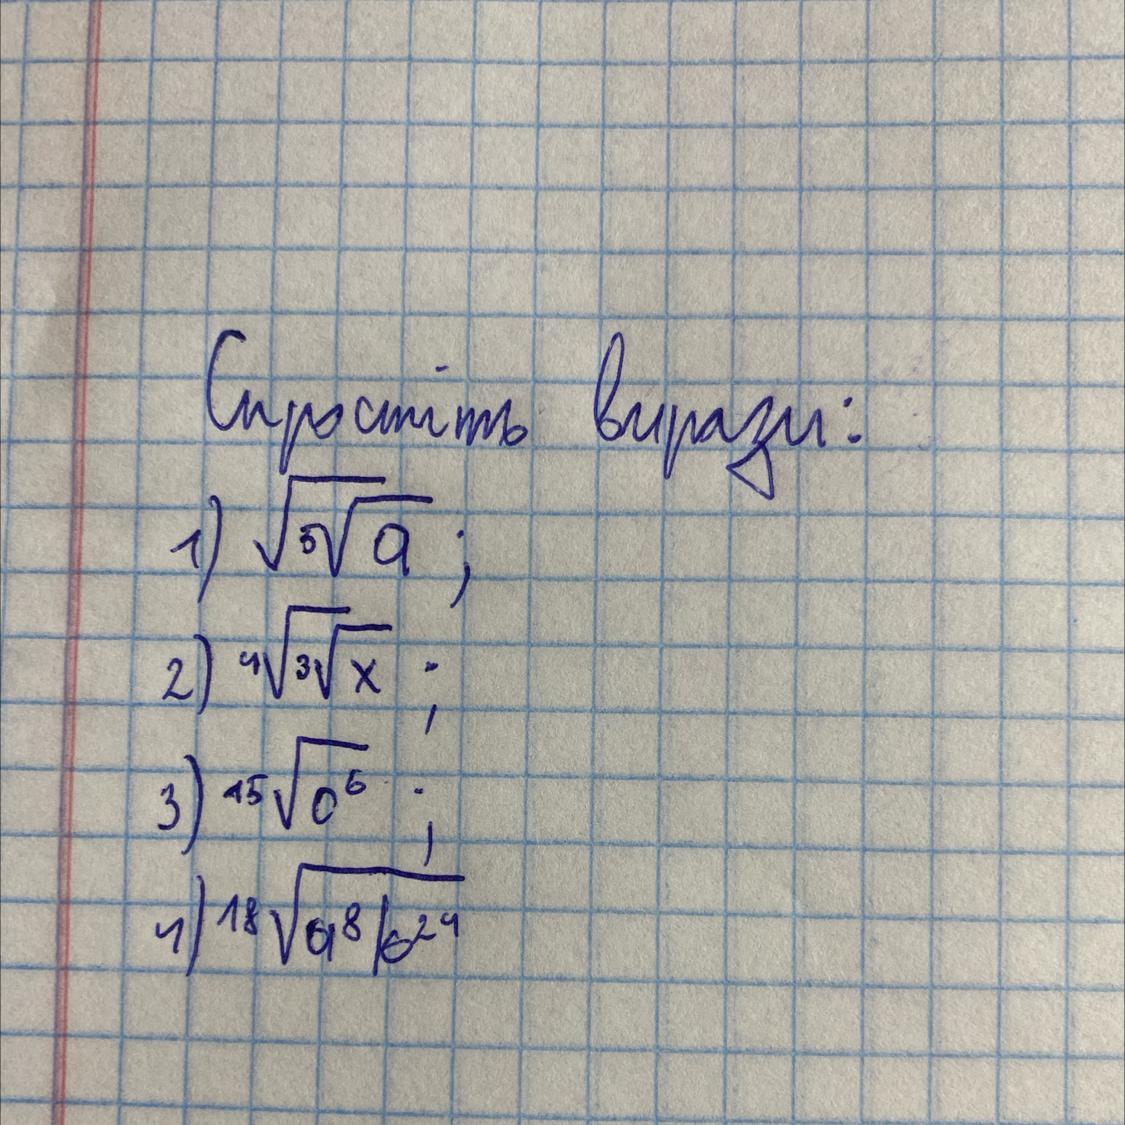 Спростіть вирази:
1) √(⁵√a) ;
2) ⁴√(³√x) ;
3) ¹⁵√(a⁶) ;
4) ¹⁸√(a⁸b²⁴)